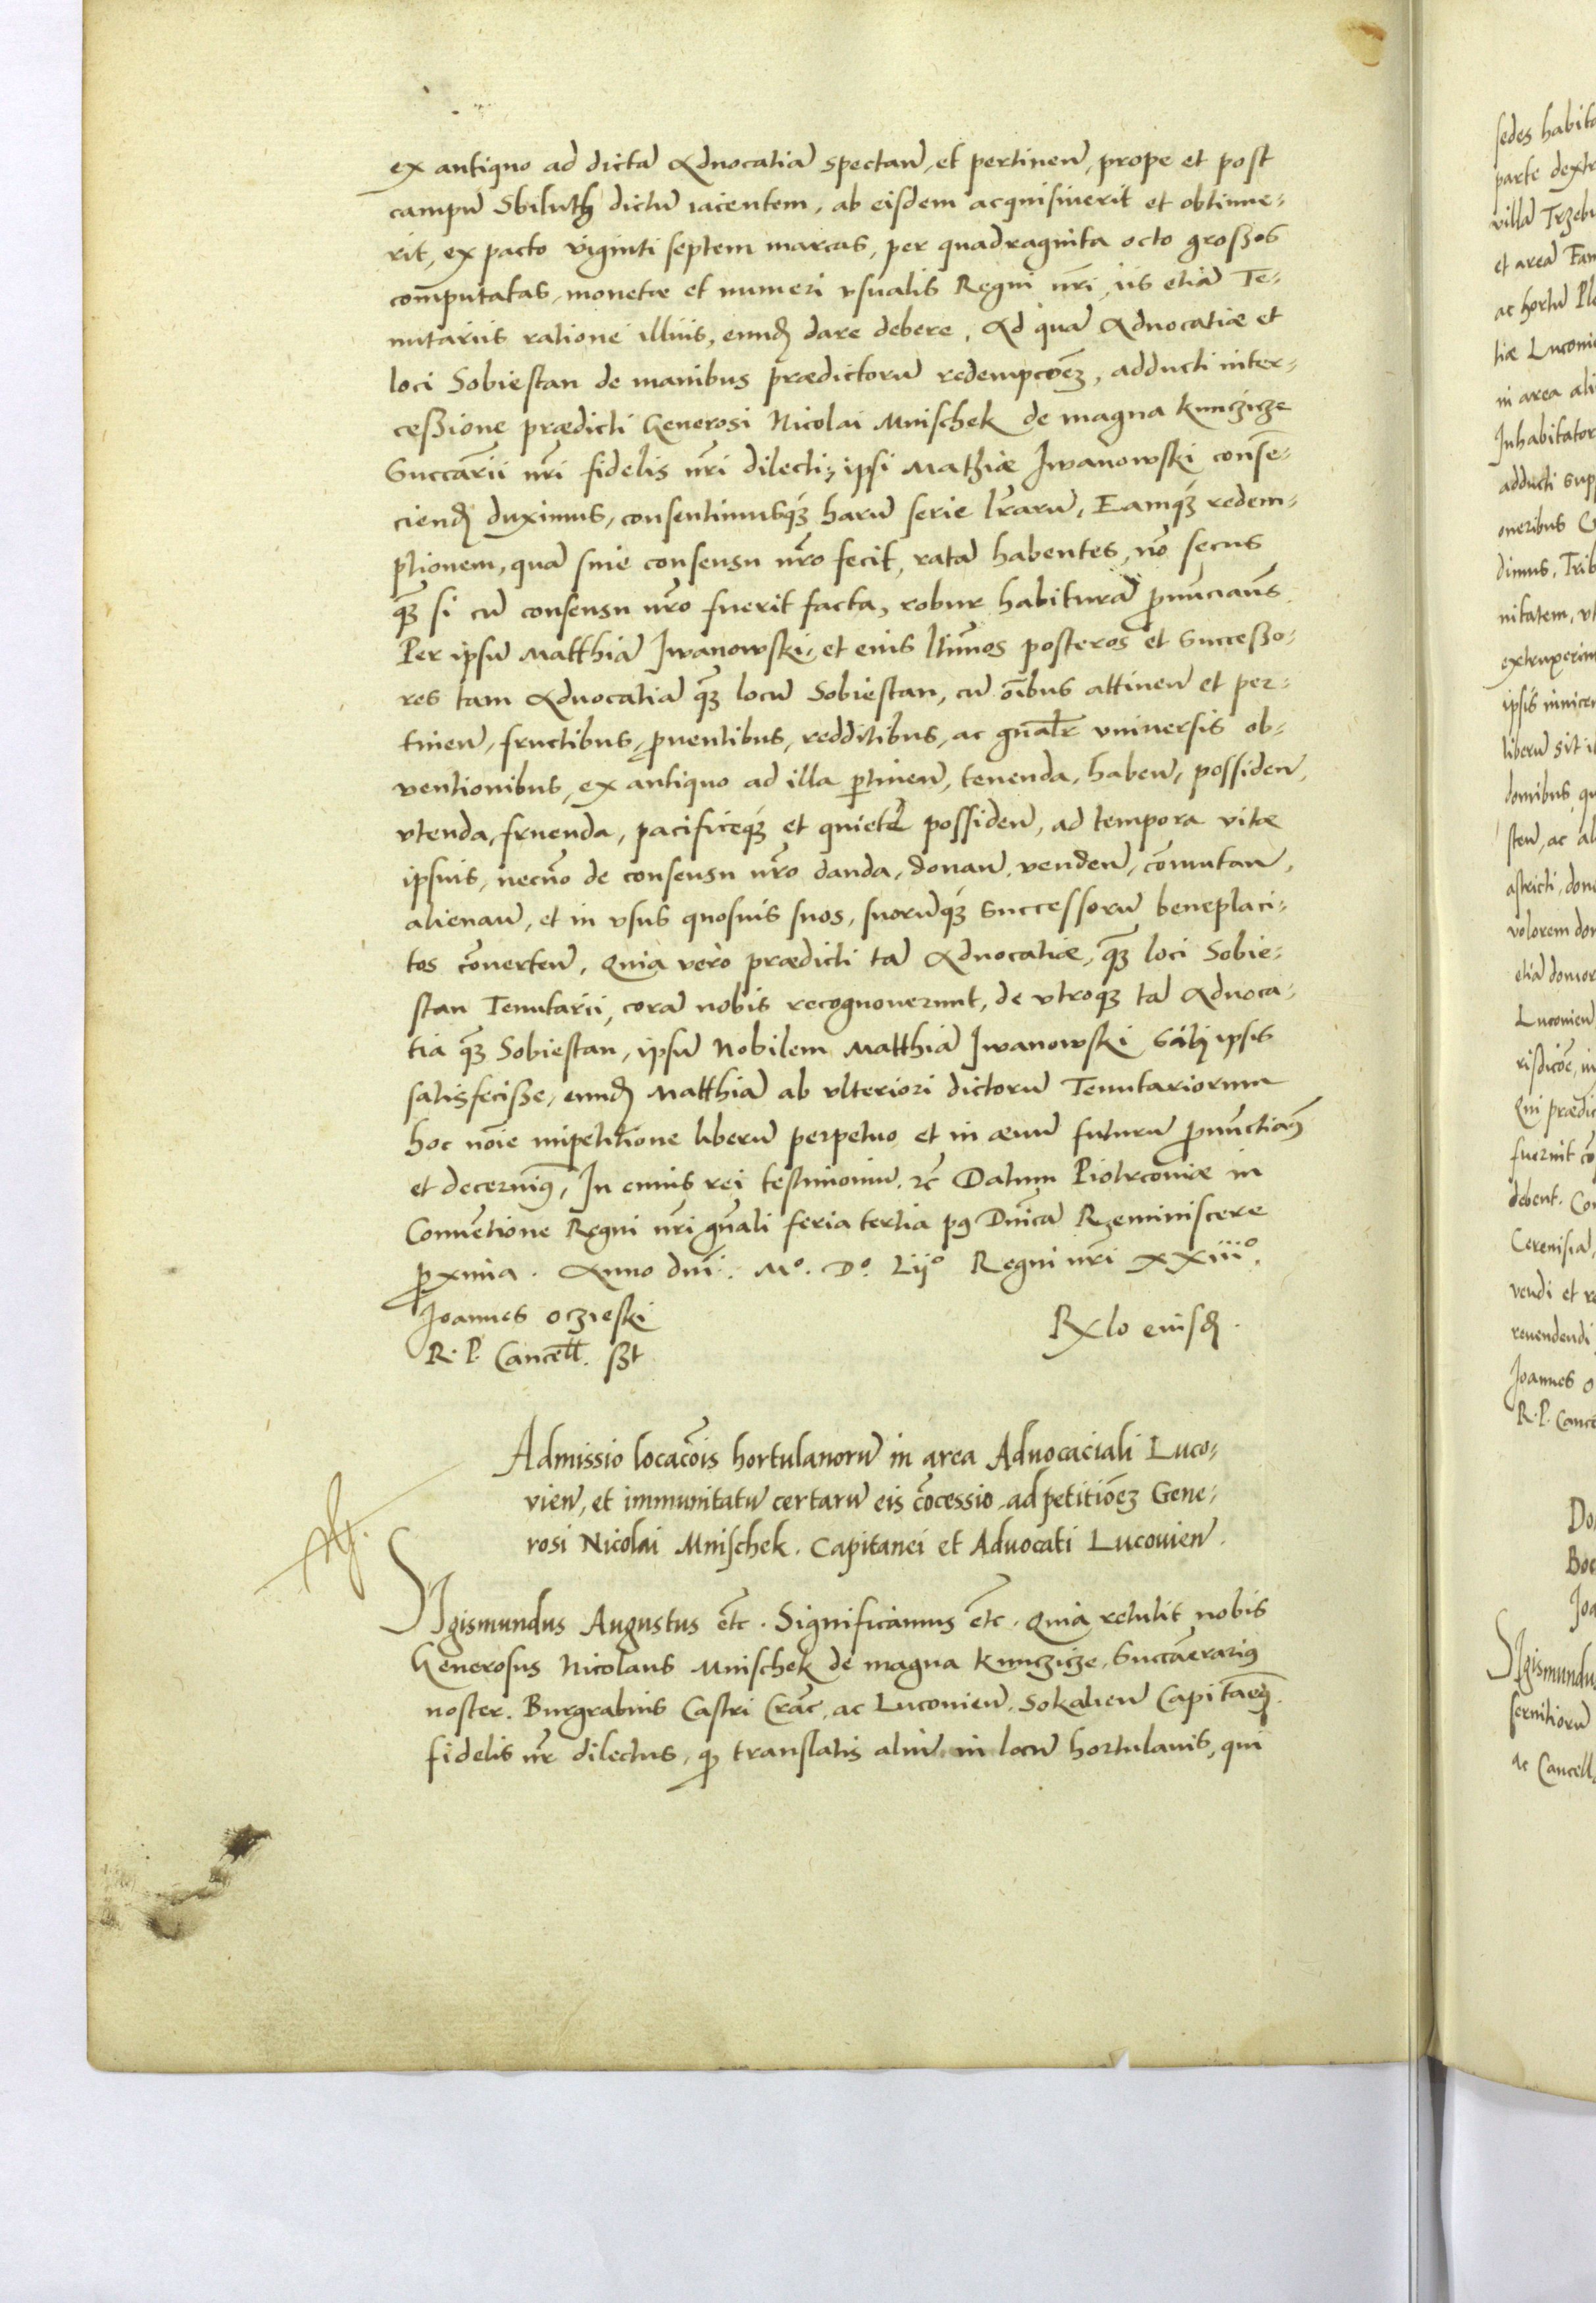 ex antiquo ad dictā Aduocatiā spectan̄, et pertinen̄, prope et post
campū Sbiluth dictū iacentem, ab eisdem acquisiuerit et obtinue-
rit, ex pacto viginti septem marcas, per quadraginta octo großos
computatas, monetæ et numeri vsualis Regni nr̄i, iis etiā Te-
nutariis ratione illius, eund dare debere, Ad quā Aduocatiæ et
loci Sobiestan de manibus prædictorū redempcōēz, adducti inter-
ceßione prædicti Generosi Nicolai Mnischek de magna Kunczicze
Succar̄ii nr̄i fidelis nr̄i dilecti, ipsi Mathiæ Iwanowski consē-
ciend duximus, consentimusqз harū serie lr̄arū, Eamqз redem-
ptionem, quā sine consensu nr̄o fecit, ratā habentes, nō secus
qз si cū consensu nr̄o fuerit facta, robur habiturā pronūcian̄s
Per ipsū Matthiā Iwanowski, et eius ltīmos posteros et Succeßo-
res tam Aduocatiā qз locū Sobiestan, cū oībus attinen̄ et per-
tinen̄, fructibus, prouentibus, redditibus, ac gn̄alr vniuersis ob-
uentionibus, ex antiquo ad illa ptinen̄, tenenda, haben̄, possiden̄,
vtenda, fruenda, pacificeqз et quiete possiden̄, ad tempora vitæ
ipsius, necnō de consensu nr̄o danda, donan̄, venden̄, cōmutan̄,
alienan̄, et in vsus quosuis suos, suorūqз successorū beneplaci-
tos cōuerten̄, Quia verò prædicti tā Aduocatiæ, qз loci Sobie-
stan Tenutarii, corā nobis recognouerunt, de vtroqз tā Aduoca-
tia qз Sobiestan, ipsū Nobilem Matthiā Iwanowski ipsis
satisfecisse, eund Matthiā ab vlteriori dictorū Tenutariorum
hoc nōīe impetitione liberū perpetuo et in æuū futurū pronūctiam9
et decernim9, In cuius rei testimoniū. rc̄ Datum Piotrcouiæ in
Conuētione Regni nr̄i gn̄ali feria tertia p9 Dn̄icā Rzeminiscere
proxima. Anno dn̄i: Mº. Dº. Lijº Regni nr̄i XXiiiº.
Joannes Oczieski
R. P. Cancell. sßt
Rx lo eiusd.
Admissio locacōis hortulanorū in area Aduocaciali Luco-
uien̄, et immunitatū certarū eis cōcessio, ad petitiōēz Gene-
rosi Nicolai Mnischek. Capitanei et Aduocati Lucouien̄.
SIgismundus Augustus etc̄. Significamus etc̄. Quia retulit nobis
Generosus Nicolaus Mnischek de magna Kunczicze, Succāerari9
noster. Burgrabius Castri Crac̄, ac Lucouien̄, Sokalien̄ Capitaeq
fidelis nr̄ dilectus, q translatis aliū in locū hortulanis, qui
sedes habita
parte dextr
villā Trzebi
et areā Fam
ac hortū Ple
tiæ Lucouie
in area ali
Inhabitator
adducti sup
oneribus C
dimus, Trib
nitatem, vt
extruxerin
ipsis
liberū sit i
domibus, qu
sten̄, ac al
astricti, don
volorem don
etiā domor
Lucouien̄
risdicōē, in
Qui prædic
fuerint cō
debent. Con
Cereuisiā,
vendi et re
reuendendi
Joannes O
R. P. Cance
Do
Boc
Joa
SIgismundu
seruitiorū
ac Cancell